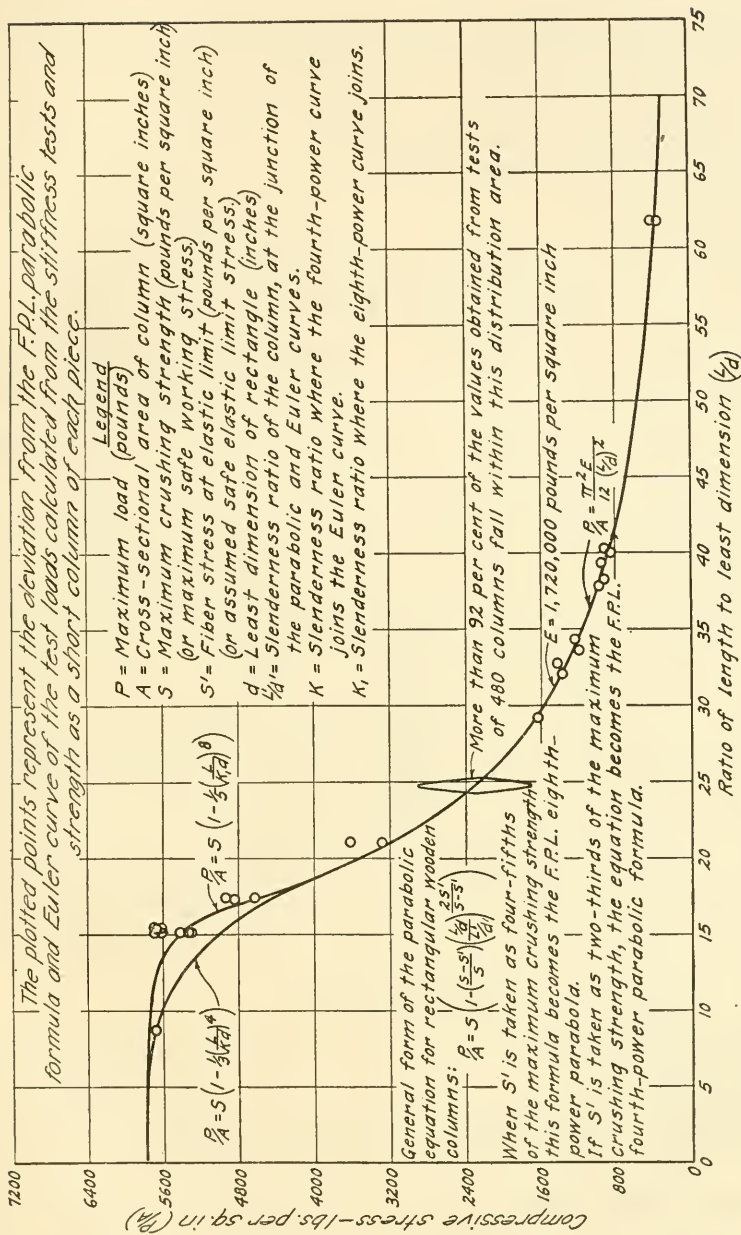 The plotted points represent the deviation from the F.P.L. parabolic
formula and Euler curve of the test loads calculated from the stiffness tests and
strength as a short column of each piece.
Legend
P = Maximum load (pounds)
A = Cross-sectional area of column (square inches)
S = Maximum crushing strength (pounds per square inch)
(or maximum safe working stress.)
S' = Fiber stress at elastic limit (pounds per square inch)
(or assumed safe elastic limit stress.)
d = Least dimension of rectangle (inches)
L'/d' = Slenderness ratio of the column, at the junction of
the parabolic and Euler curves.
K = Slenderness ratio where the fourth-power curve
joins the Euler curve.
K₁ = Slenderness ratio where the eighth-power curve joins.
P/A = S (1 - 1/5 (L/K₁d)⁸)
P/A = S (1 - 1/3 (L/Kd)⁴)
More than 92 per cent of the values obtained from tests
of 480 columns fall within this distribution area.
General form of the parabolic
equation for rectangular wooden
columns: P/A = S (1 - (S-S'/S) (L/d / L'/d')^(2S'/S-S'))
When S' is taken as four-fifths
of the maximum crushing strength
this formula becomes the F.P.L. eighth-
power parabola.
If S' is taken as two-thirds of the maximum
crushing strength, the equation becomes the F.P.L.
fourth-power parabolic formula.
E = 1,720,000 pounds per square inch
P/A = π² E / 12 (L/d)²
Compressive stress - lbs. per sq. in (P/A)
7200
6400
5600
4800
4000
3200
2400
1600
800
0
0 5 10 15 20 25 30 35 40 45 50 55 60 65 70 75
Ratio of length to least dimension (L/d)